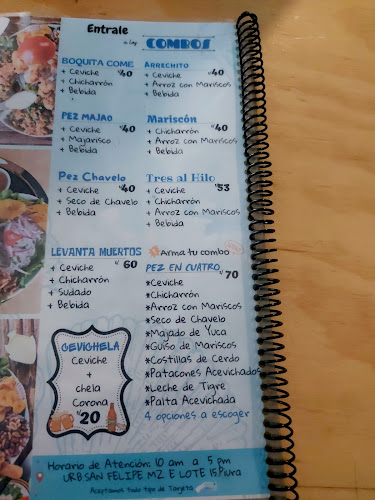 Entrale
a los COMBOS
BOQUITA COME
+ Ceviche S/40
+ Chicharrón
+ Bebida
ARRECHITO
+ Ceviche S/40
+ Arroz con Mariscos
+ Bebida
PEZ MAJAO
+ Ceviche S/40
+ Majarisco
+ Bebida
Mariscón
+ Chicharrón S/40
+ Arroz con Mariscos
+ Bebida
Pez Chavelo
+ Ceviche S/40
+ Seco de Chavelo
+ Bebida
Tres al Hilo
+ Ceviche S/53
+ Chicharrón
+ Arroz con Mariscos
+ Bebida
LEVANTA MUERTOS
+ Ceviche S/60
+ Chicharrón
+ Sudado
+ Bebida
Arma tu combo
PEZ EN CUATRO S/70
*Ceviche
*Chicharrón
*Arroz con Mariscos
*Seco de Chavelo
*Majado de Yuca
*Guiso de Mariscos
*Costillas de Cerdo
*Patacones Acevichados
*Leche de Tigre
*Palta Acevichada
4 opciones a escoger
CEVICHELA
Ceviche
+
chela
Corona
S/20
Horario de Atención: 10 am a 5 pm
URB SAN FELIPE MZ E LOTE 15, Piura
Aceptamos todo tipo de Tarjeta